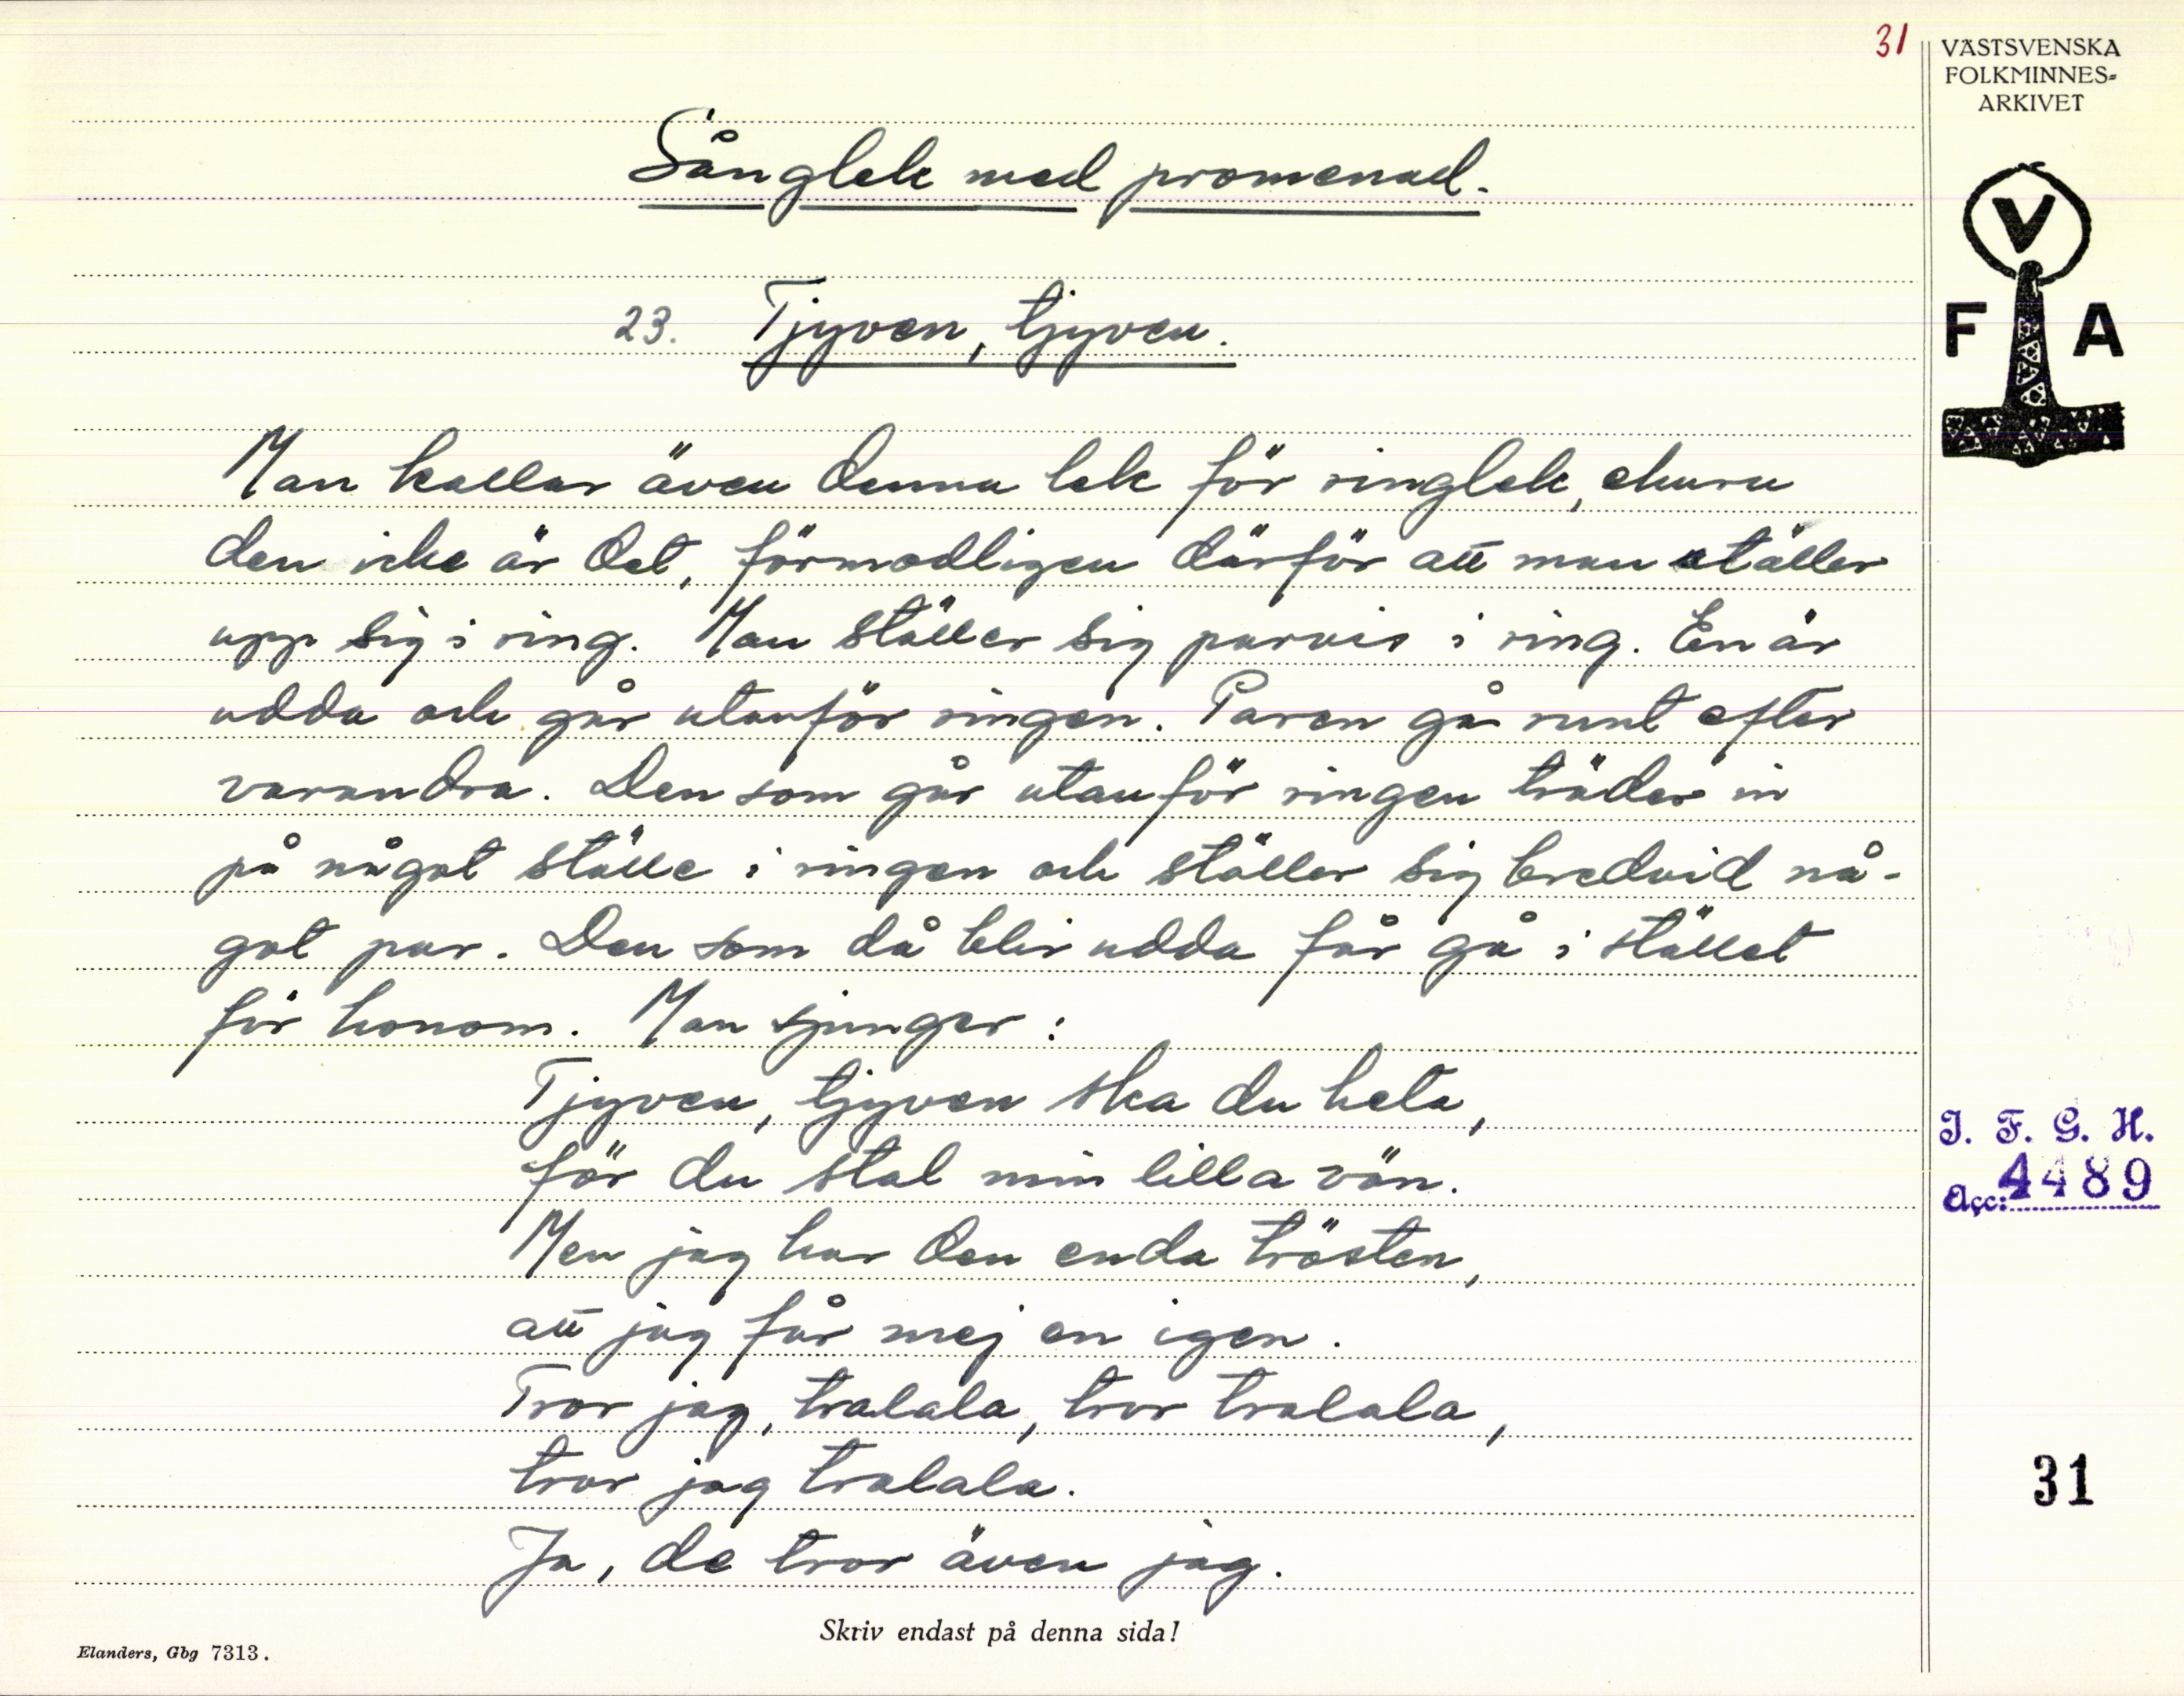 31
VÄSTSVENSKA
FOLKMINNES-
ARKIVET
Sånglek med promenad.
V
F A
23. Tjyven, tjyven.
Man kallar även denna lek för ringlek, ehuru
den icke är det, förmodligen därför att man ställer
upp sig i ring. Man ställer sig parvis i ring. En är
udda och går utanför ringen. Paren gå runt efter
varandra. Den som går utanför ringen träder in
på något ställe i ringen och ställer sig bredvid nå-
got par. Den som då blir udda får gå i stället
för honom. Man sjunger:
Tjyven, tjyven ska du heta,
för du stal min lilla vän.
Men jag har den enda trösten,
att jag får mej en igen.
Tror jag, tralala, tror tralala,
tror jag tralala.
Ja, de tror även jag.
I. F. G. H.
Acc: 4489
31
Skriv endast på denna sida!
Elanders, Gbg 7313.